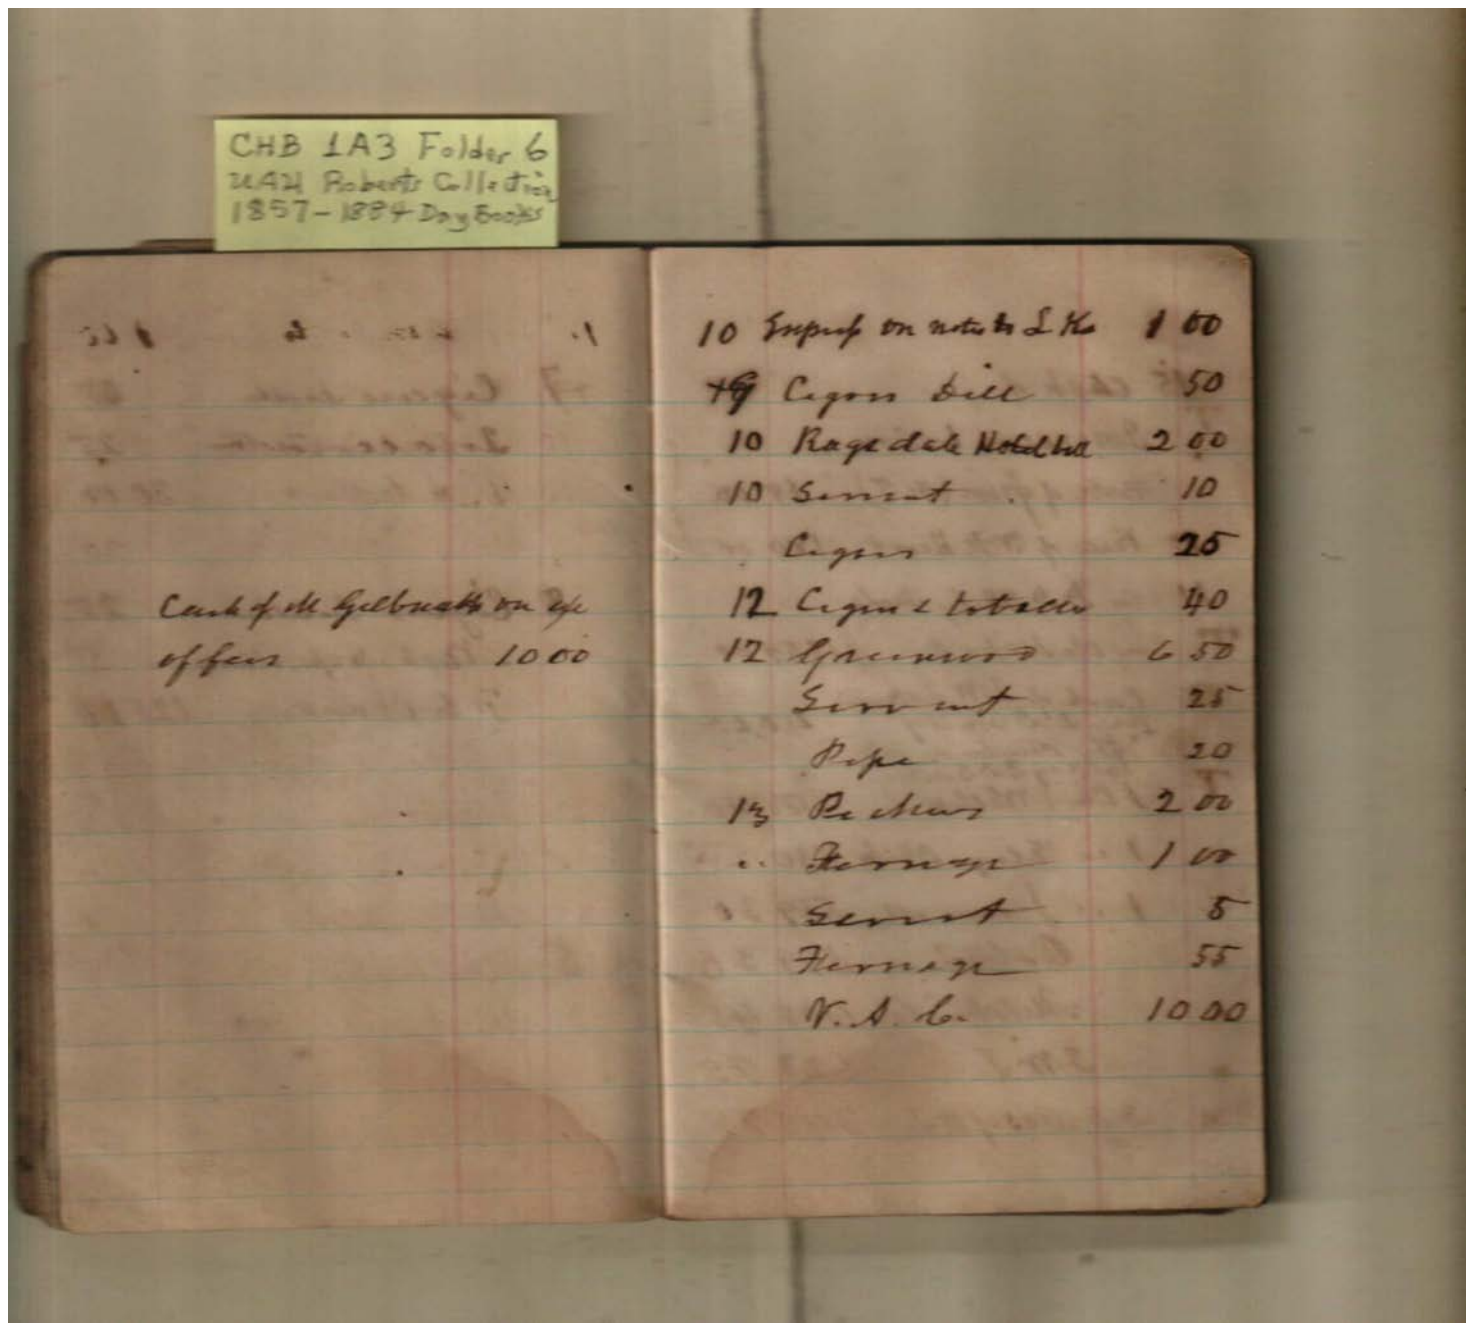 CHB 1A3 Folder 6
UAH Roberts Collection
1857-1884 Day Books
Cash of M Gilbreath on
of fees 10 00
10 Express on notes to 1 00
9 Cigars 50
10 Ragsdale Hotel bill 2 00
10 Servant 10
Cigars 25
12 Cigars & tobacco 40
12 Greenwood 6 50
Servant 25
Pipe 20
13 2 00
" Ferriage 1 00
Servant 5
Ferriage 55
V. A. C. 10 00